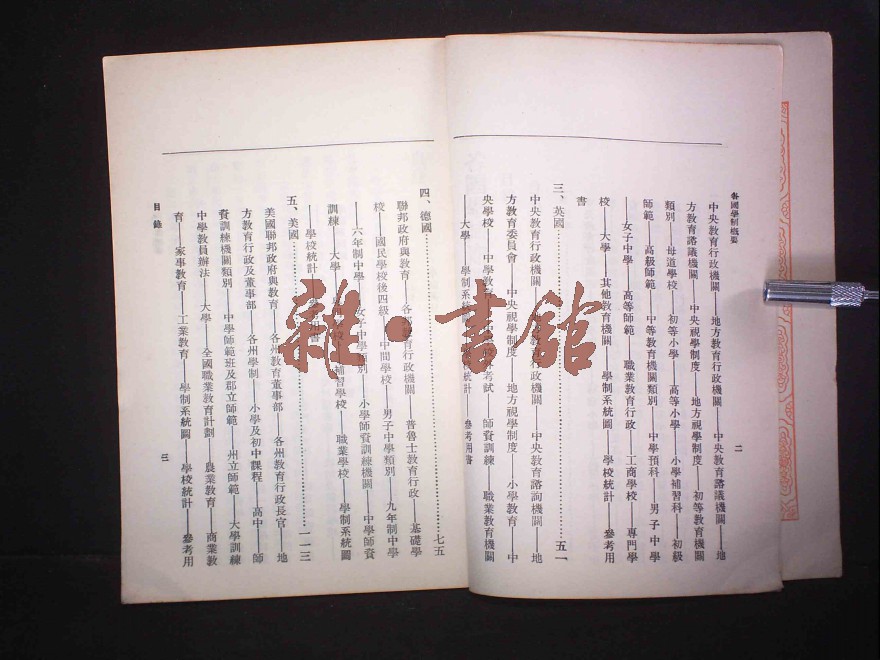 各國學制概要
二
中央教育行政機關——地方教育行政機關——中央教育諮議機關——地
方教育諮議機關——中央視學制度——地方視學制度——初等教育機關
類別——母道學校——初等小學——高等小學——小學補習科——初級
師範——高級師範——中等教育機關類別——中學預科——男子中學
——女子中學——高等師範——職業教育行政——工商學校——專門學
校——大學——其他教育機關——學制系統圖——學校統計——參考用
書
三、英國……五一
中央教育行政機關——地方教育行政機關——中央教育諮詢機關——地
方教育委員會——中央視學制度——地方視學制度——小學教育——中
央學校——中學教 考試——師資訓練——職業教育機關
——大學——學制系統 統計——參考用書
四、德國……七五
聯邦政府與教育——各邦教育行政機關——普魯士教育行政——基礎學
校——國民學校後四級——中間學校——男子中學類別——九年制中學
——六年制中學——女子中學類別——小學師資訓練機關——中學師資
訓練——大學 補習學校——職業學校——學制系統圖
——學校統計 書
五、美國……一一三
美國聯邦政府與教育——各州教育董事部——各州教育行政長官——地
方教育行政及董事部——各州學制——小學及初中課程——高中——師
資訓練機關類別——中學師範班及郡立師範——州立師範——大學訓練
中學教員辦法——大學——全國職業教育計劃——農業教育——商業教
育——家事教育——工業教育——學制系統圖——學校統計——參考用
目錄
三
雜·書館